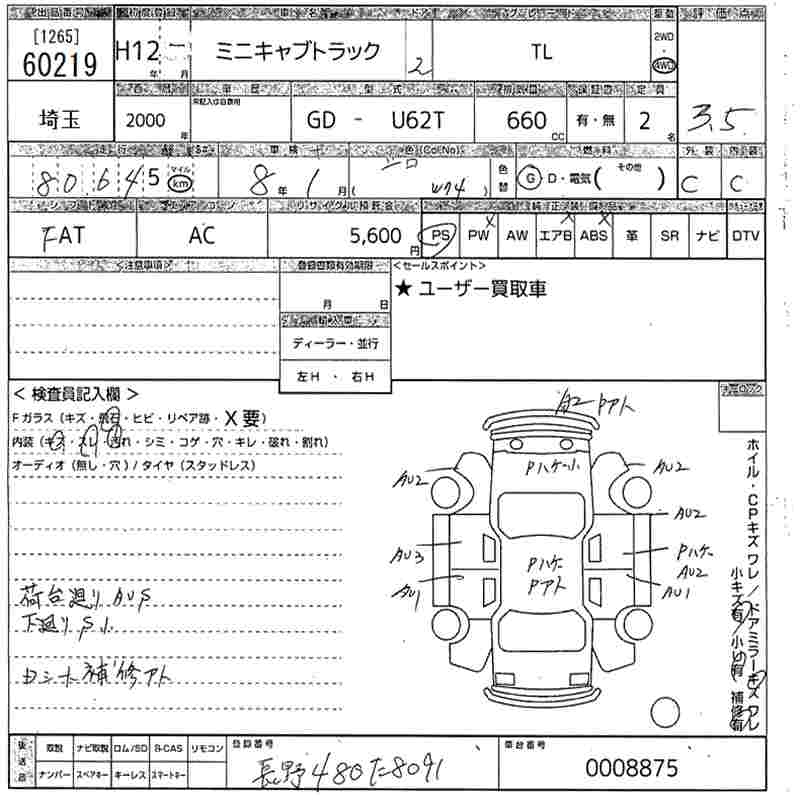 出品番号 初度登録 車 名 ドア グレード 駆動 評価点
[1265]
60219 H12 年 月 ミニキャブトラック 2 TL 2WD ・ 4WD
3.5
西暦 車歴 型式 排気量 保証書 定員
埼玉 2000年 未記入は自家用 GD - U62T 660cc 有・無 2名
走行 車検 色(Col.No) 色替 燃料 外装 内装
80645 マイル km 8年 1月 シロ ( W74 ) G D・電気( その他 ) C C
シフト エアコン リサイクル預託金 純正装備品
FAT AC 5,600円 PS PW AW エアB ABS 革 SR ナビ DTV
<注意事項> 登録書類有効期限 <セールスポイント>
月 日 ★ ユーザー買取車
輸入車
ディーラー・並行
左H ・ 右H
< 検査員記入欄 >
Fガラス (キズ・飛石・ヒビ・リペア跡・X要)
内装 (キズ・スレ・汚れ・シミ・コゲ・穴・キレ・破れ・割れ)
オーディオ (無し・穴) / タイヤ (スタッドレス)
Pアト
Pハケ小
AU2 AU2
AU2
AU3 Pハケ Pハケ
Pアト AU2
AU1 AU1
荷台廻り AUS
下廻り S小
Dシート補修アト
ホイル・CPキズ ワレ / ドアミラーキズ ワレ
小キズ有 / 小U有 補修有
後送品 取説 ナビ取説 ロム/SD B-CAS リモコン 登録番号 車台番号
ナンバー スペアキー キーレス スマートキー 長野 480 た 8091 0008875